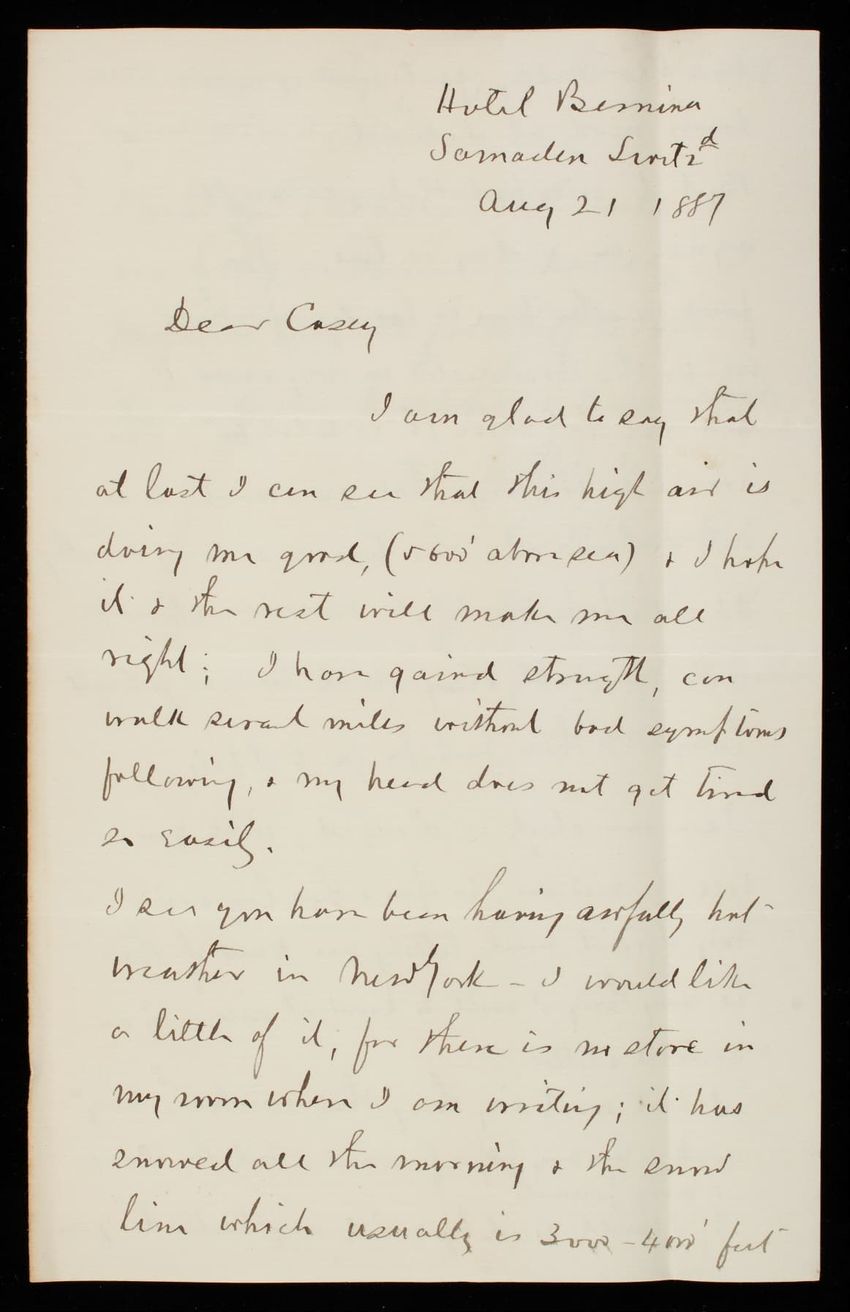 Hotel Bernina
Samaden Switzd
Aug 21 1887
Dear Casey
I am glad to say that
at last I can see that this high air is
doing me good, (5600' above sea) & I hope
it & the rest will make me all
right; I have gained strength, can
walk several miles without bad symptoms
following, & my head does not get tired
so easily.
I see you have been having awfully hot
weather in New York - I would like
a little of it, for there is no stove in
my room where I am writing; it has
snowed all the morning & the snow
line which usually is 3000 - 4000' feet